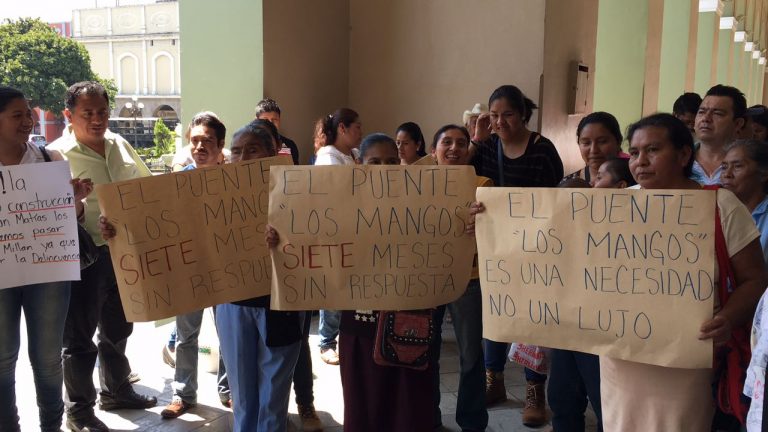 !la
construcción
an Matías los
emos pasar
r Millan ya que
r la Delincuenci
EL PUENTE
"LOS MANGO
SIETE MESES
SIN RESPUE
EL PUENTE
"LOS MANGOS"
SIETE MESES
SIN RESPUESTA
EL PUENTE
"LOS MANGOS"
ES UNA NECESIDAD
NO UN LUJO